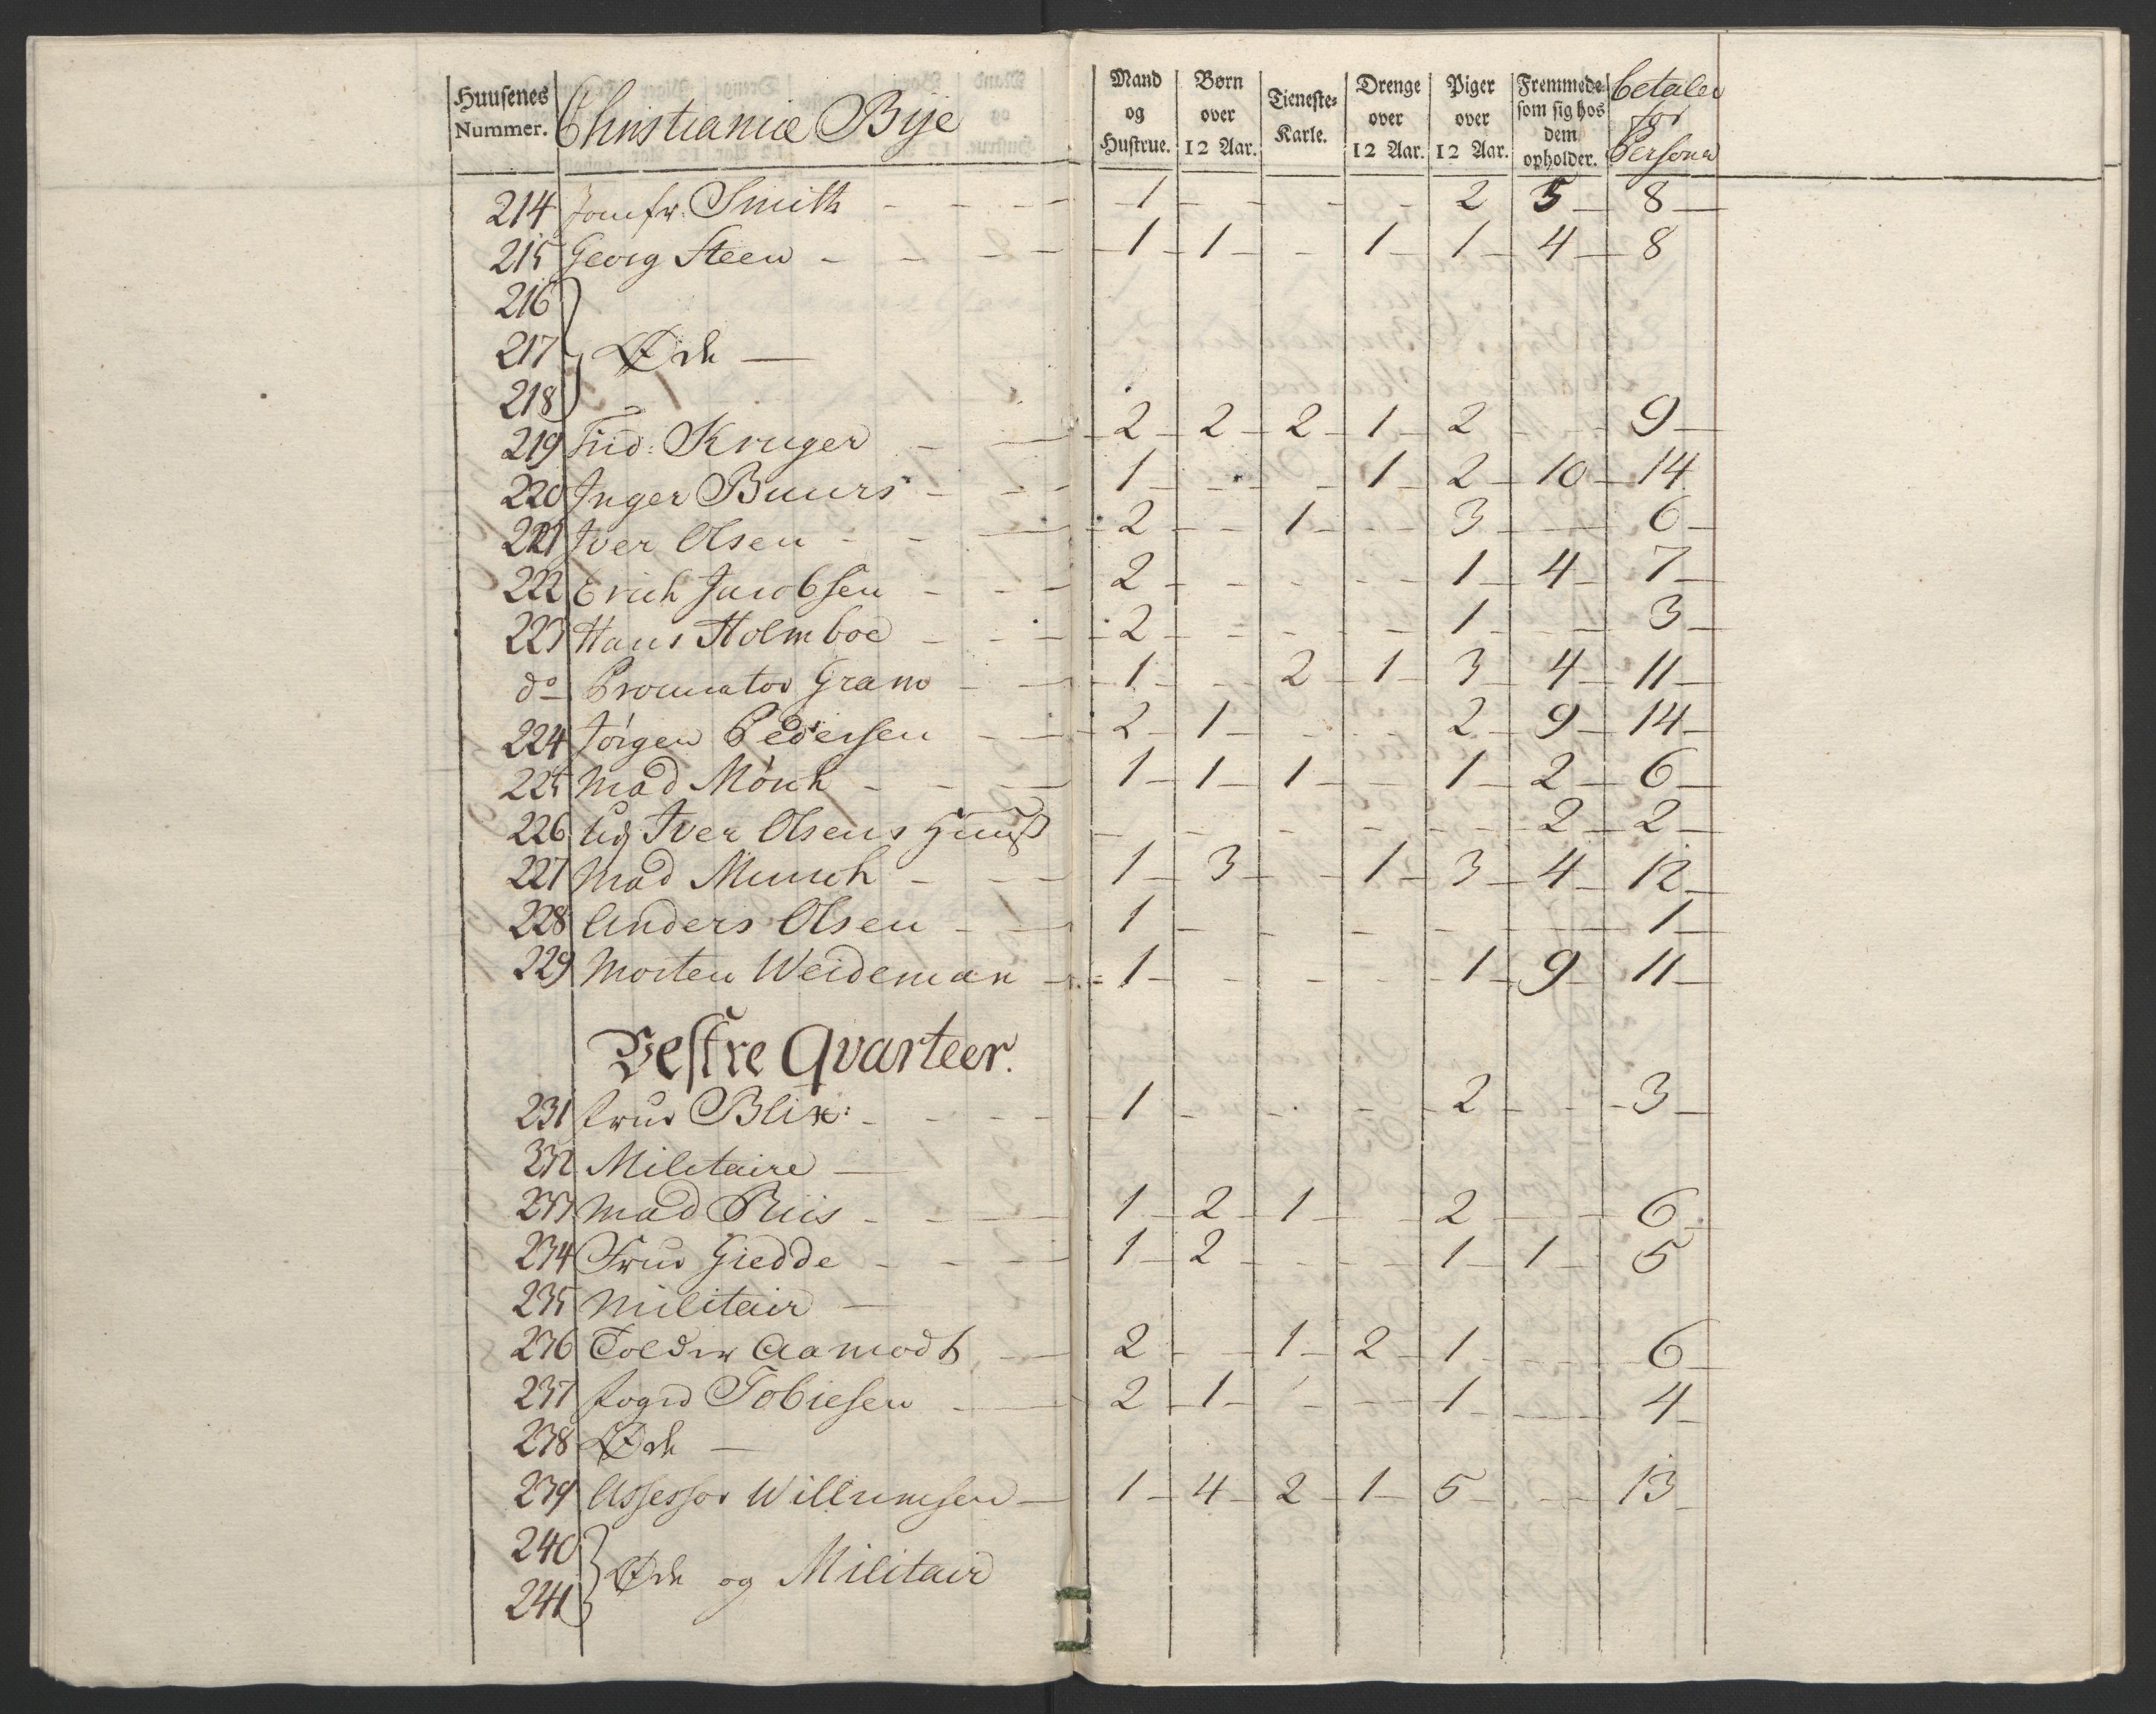 Huusenes Nummer. Christianiæ Bye Mand og Hustrue. Børn over 12 Aar. Tieneste-Karle. Drenge over 12 Aar. Piger over 12 Aar. Fremmede som sig hos dem opholder. betaler for Persona
214 Jomfr: Smith - - - - 1 - - - - 2 5 - 8 -
215 Georg Steen - - - - 1 - 1 - - 1 - 1 - 4 - 8
216
217 } Øde -
218
219 Frid: Kruger - - 2 - 2 - 2 - 1 - 2 - - 9 -
220 Inger Buurs - - - 1 - - - 1 - 2 - 10 - 14
221 Iver Olsen - - - 2 - - 1 - - 3 - - 6 -
222 Erich Jacobsen - - - 2 - - - - 1 - 4 - 7 -
223 Hans Holmboe - - - 2 - - - - 1 - - 3 -
do Procurator Gram - - 1 - - 2 - 1 - 3 - 4 - 11 -
224 Jørgen Pedersen - - 2 - 1 - - - 2 - 9 - 14 -
225 Mad Mörch - - - 1 - 1 - 1 - - 1 - 2 - 6 -
226 udj Iver Olsens Huuß - - - - - 2 - 2 -
227 Mad Munch - - - 1 - 3 - - 1 - 3 - 4 - 12 -
228 Anders Olsen - - 1 - - - - - - 1 -
229 Morten Weideman - 1 - - - - 1 - 9 - 11 -
Vestre Qvarteer.
231 frue Blix: - - - - 1 - - - - 2 - - 3 -
232 Militaire -
233 Mad Riis - - - 1 - 2 - 1 - - 2 - - 6 -
234 Frue Giedde - - - - 1 - 2 - - - 1 - 1 - 5
235 Militair -
236 Tolder Aamodt - - 2 - - 1 - 2 - 1 - - 6 -
237 fogd Tobiesen - - 2 - 1 - - - 1 - - 4 -
238 Øde -
239 Assessor Willumsen - 1 - 4 - 2 - 1 - 5 - - 13 -
240
241 } Øde og Militair